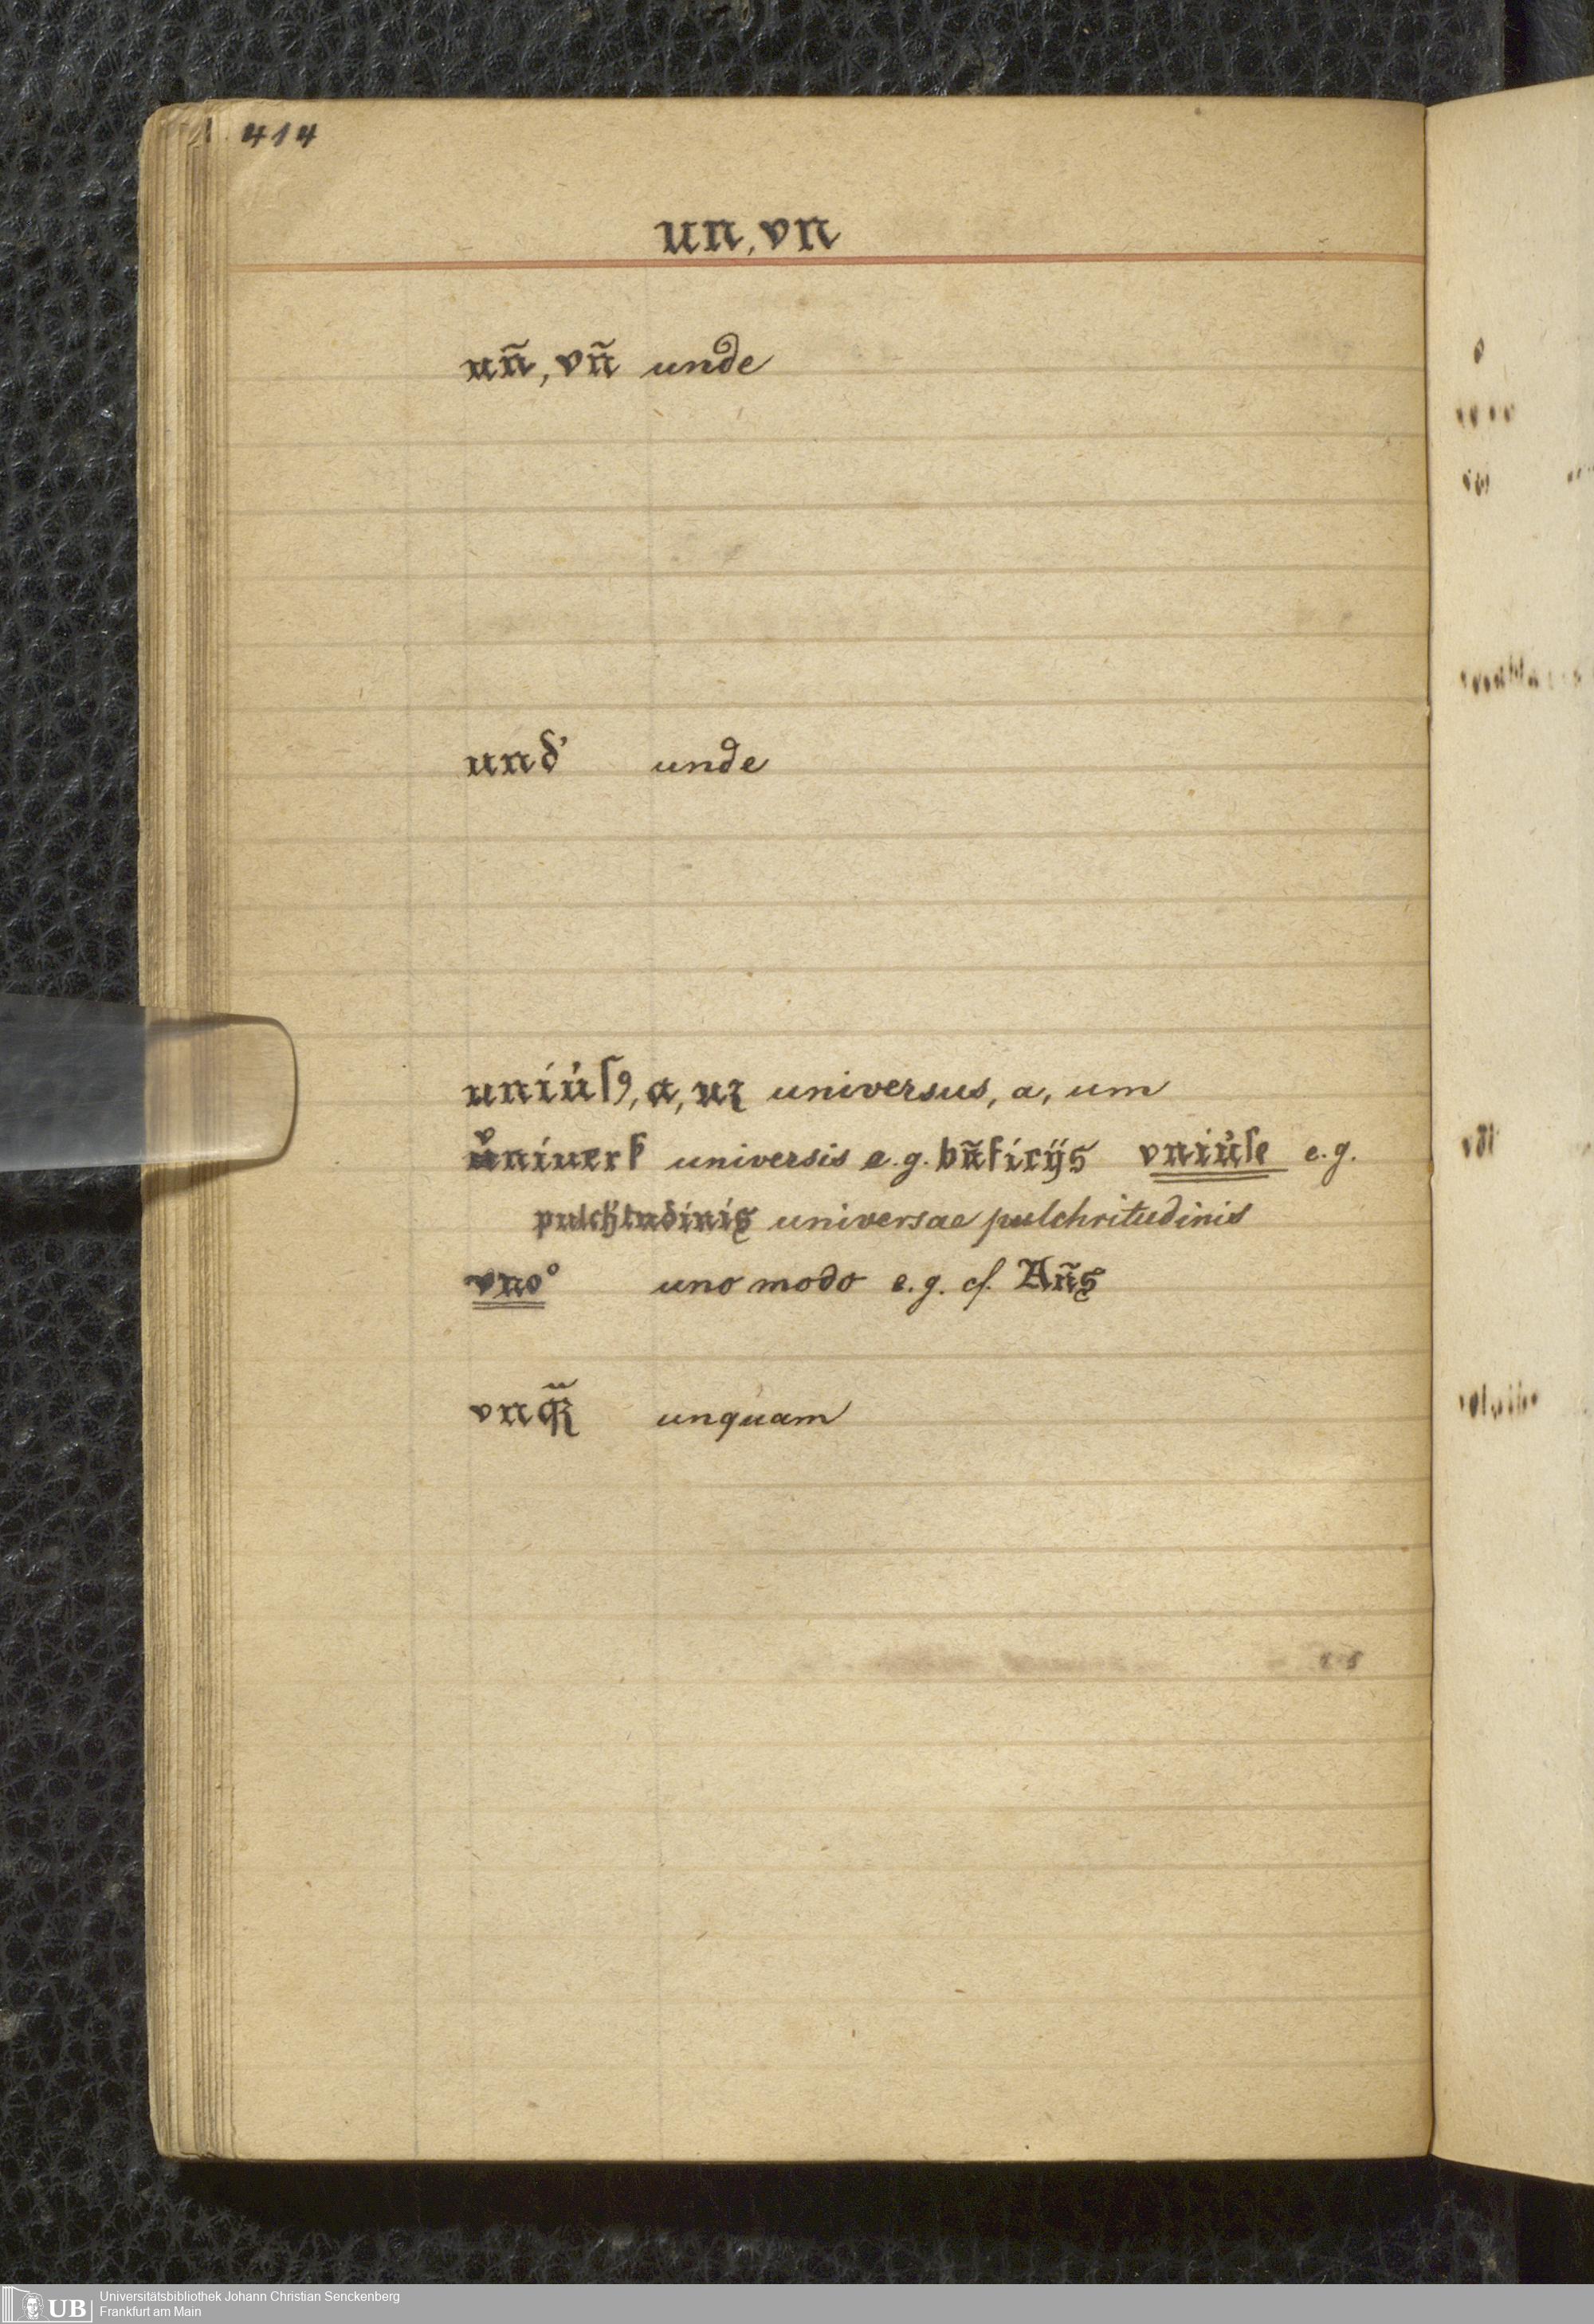 414
un, vn
un̄, vn̄ unde
unď unde
uniu̓ſꝯ, a, uꝫ universus, a, um
univerẜ universis e.g. bn̄ficijs vniu̓ſe e.g.
pulch̓tudinis universae pulchritudinis
vno° uno modo e.g. cf. An̄s
vnq̄ꝫ unquam
UB Universitätsbibliothek Johann Christian Senckenberg
Frankfurt am Main